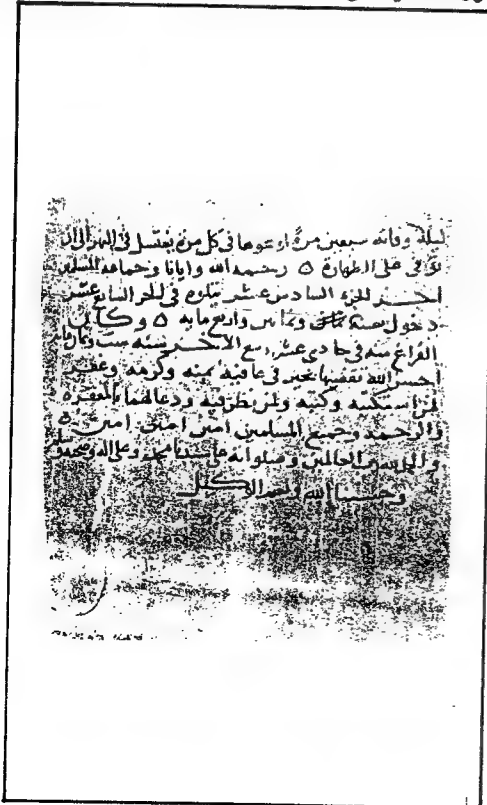 ليلة وفاته سبعين مرة ارعوها في كل مرة يغتسل في النهر الى ان
توفي على الطهارة ه رحمه الله وايانا وجماعة المسلمين
اخر الجزء السادس عشر يتلوه في الجزء السابع عشر
دخول سنة وثمانين واربع مايه ه وكان
الفراغ منه في حادي عشر ربيع الاخر سنه ست
احسن الله تقضيها بخير في عافية بمنه وكرمه وغفر
لمن استكتبه وكتبه ولمن نظر فيه ودعا لهما بالمغفرة
والرحمة ولجميع المسلمين امين امين امين ه
والحمد لله رب العالمين وصلواته على سيدنا محمد وعلى اله وصحبه
وحسبنا الله ونعم الوكيل